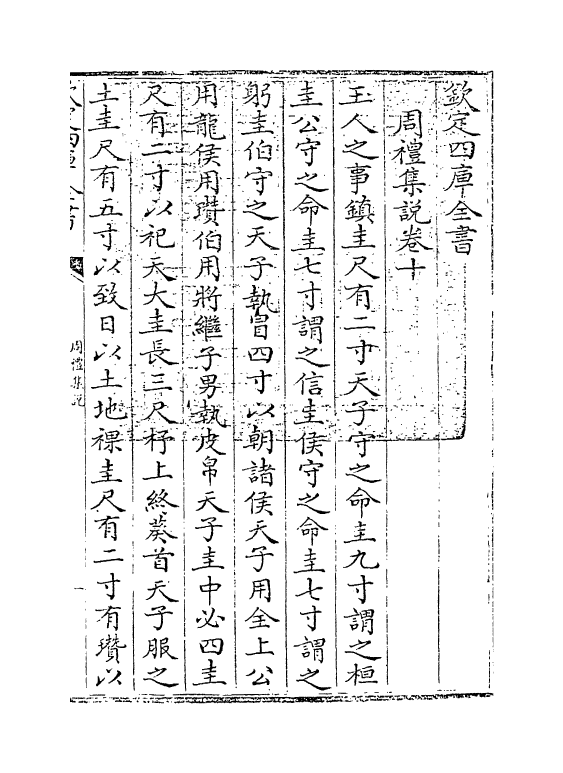 欽定四庫全書
周禮集説卷十
玉人之事鎮圭尺有二寸天子守之命圭九寸謂之桓
圭公守之命圭七寸謂之信圭侯守之命圭七寸謂之
躬圭伯守之天子執冒四寸以朝諸侯天子用全上公
用龍侯用瓚伯用將繼子男執皮帛天子圭中必四圭
尺有二寸以祀天大圭長三尺杼上終葵首天子服之
土圭尺有五寸以致日以土地祼圭尺有二寸有瓚以
周禮集説
一